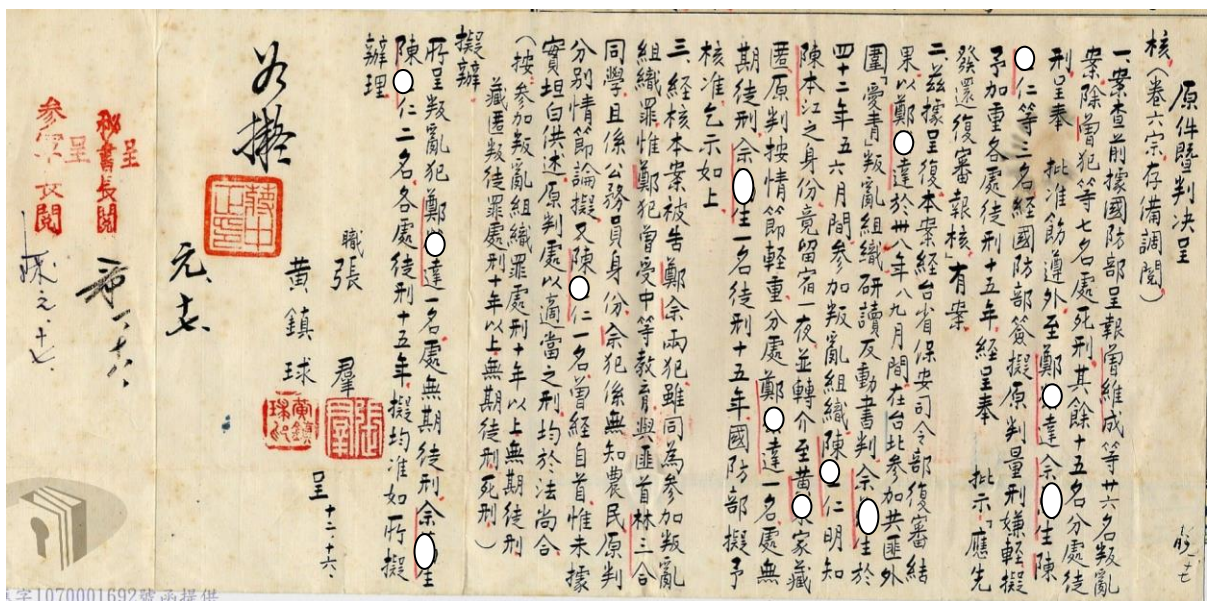 原件暨判决呈
核（卷六宗存備調閱）
一、案查前據國防部呈報曾維成等廿六名叛亂
案除曾犯等七名處死刑其餘十五名分處徒
刑呈奉　批准飭遵外至鄭○達余○生陳
○仁等三名經國防部簽擬原判量刑嫌輕擬
予加重各處徒刑十五年經呈奉　批示「應先
發還復審報核」有案
二、茲據呈復本案經台省保安司令部復審結
果以鄭○達於卅八年八九月間在台北參加共匪外
圍「愛青」叛亂組織研讀反動書判余○生於
四十二年五六月間參加叛亂組織陳○仁明知
陳本江之身份竟留宿一夜並轉介至黃○家藏
匿原判按情節輕重分處鄭○達一名處無
期徒刑余○生一名徒刑十五年國防部擬予
核准乞示如上
三、經核本案被告鄭余兩犯雖同為參加叛亂
組織罪惟鄭犯曾受中等教育與匪首林三合
同學且係公務員身份余犯係無知農民原判
分別情節論擬又陳○仁一名曾經自首惟未據
實坦白供述原判處以適當之刑均於法尚合
（按：參加叛亂組織罪處刑十年以上無期徒刑
藏匿叛徒罪處刑十年以上無期徒刑死刑）
擬辦
所呈叛亂犯鄭○達一名處無期徒刑余○生
陳○仁二名各處徒刑十五年擬均准如所擬
辦理
職張羣
黃鎮球
呈十二、十六、
如擬
蔣中正印
元、七、
呈
秘書長閱
呈
參軍長閱
字1070001692號函提供